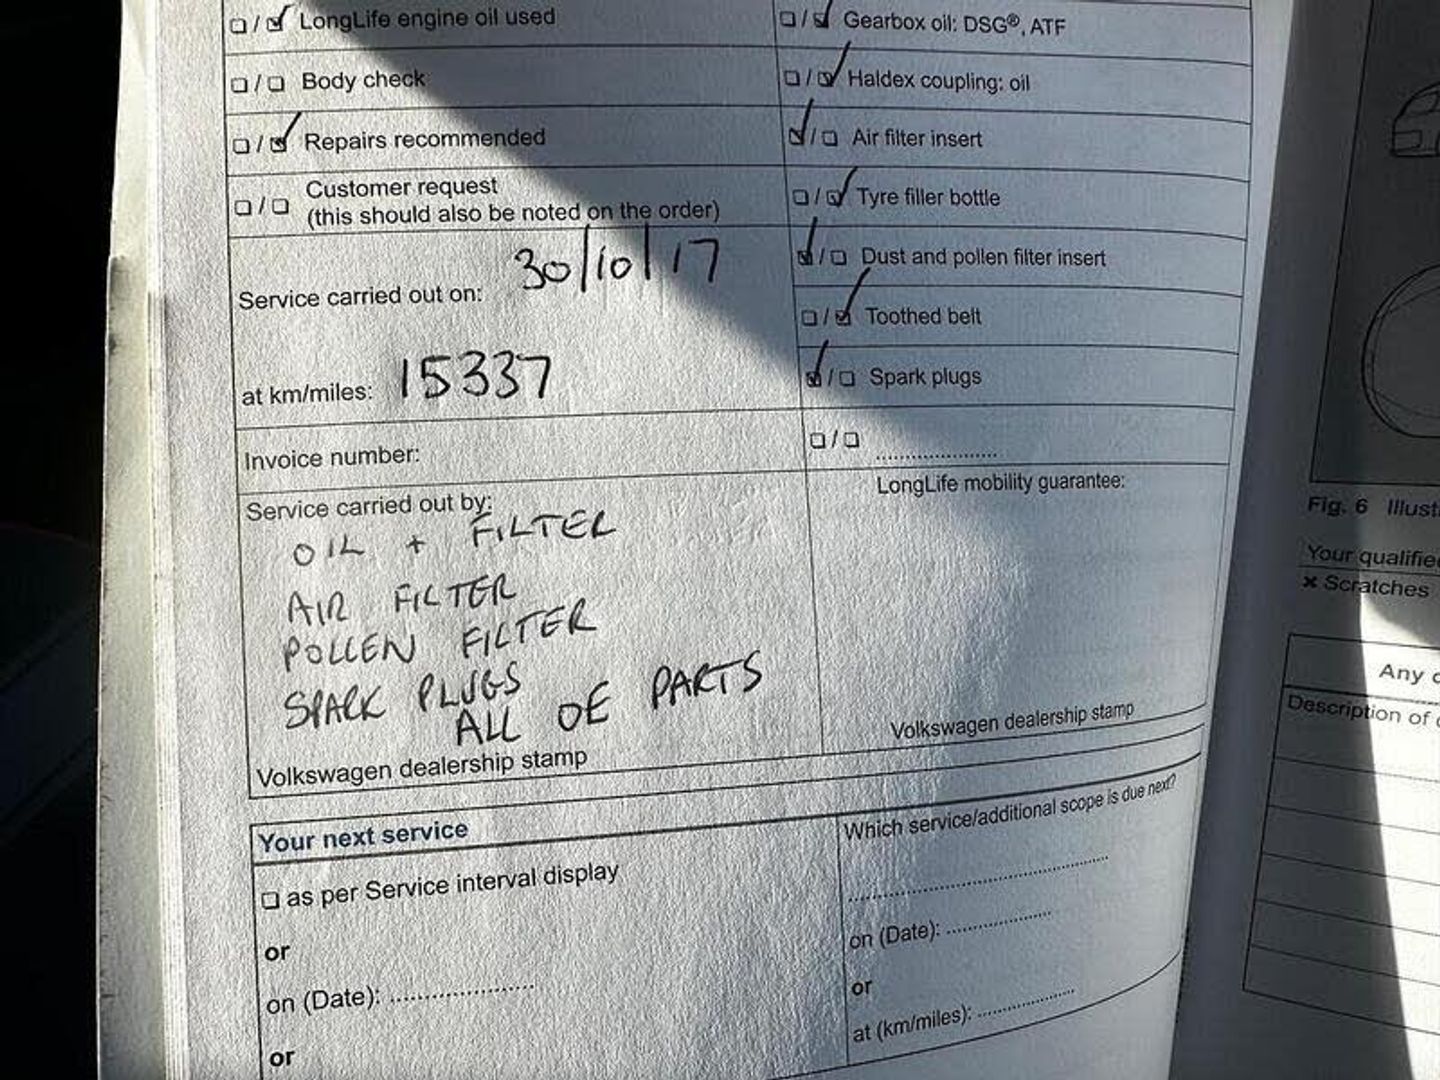 LongLife engine oil used
Body check
Repairs recommended
Customer request
(this should also be noted on the order)
Service carried out on: 30/10/17
at km/miles: 15337
Invoice number:
Service carried out by:
OIL + FILTER
AIR FILTER
POLLEN FILTER
SPARK PLUGS
ALL OE PARTS
Volkswagen dealership stamp
Gearbox oil: DSG®, ATF
Haldex coupling: oil
Air filter insert
Tyre filler bottle
Dust and pollen filter insert
Toothed belt
Spark plugs
LongLife mobility guarantee:
Volkswagen dealership stamp
Your next service
as per Service interval display
or
on (Date):
or
Which service/additional scope is due next?
on (Date):
or
at (km/miles):
Fig. 6 Illust
Your qualifie
× Scratches
Any
Description of